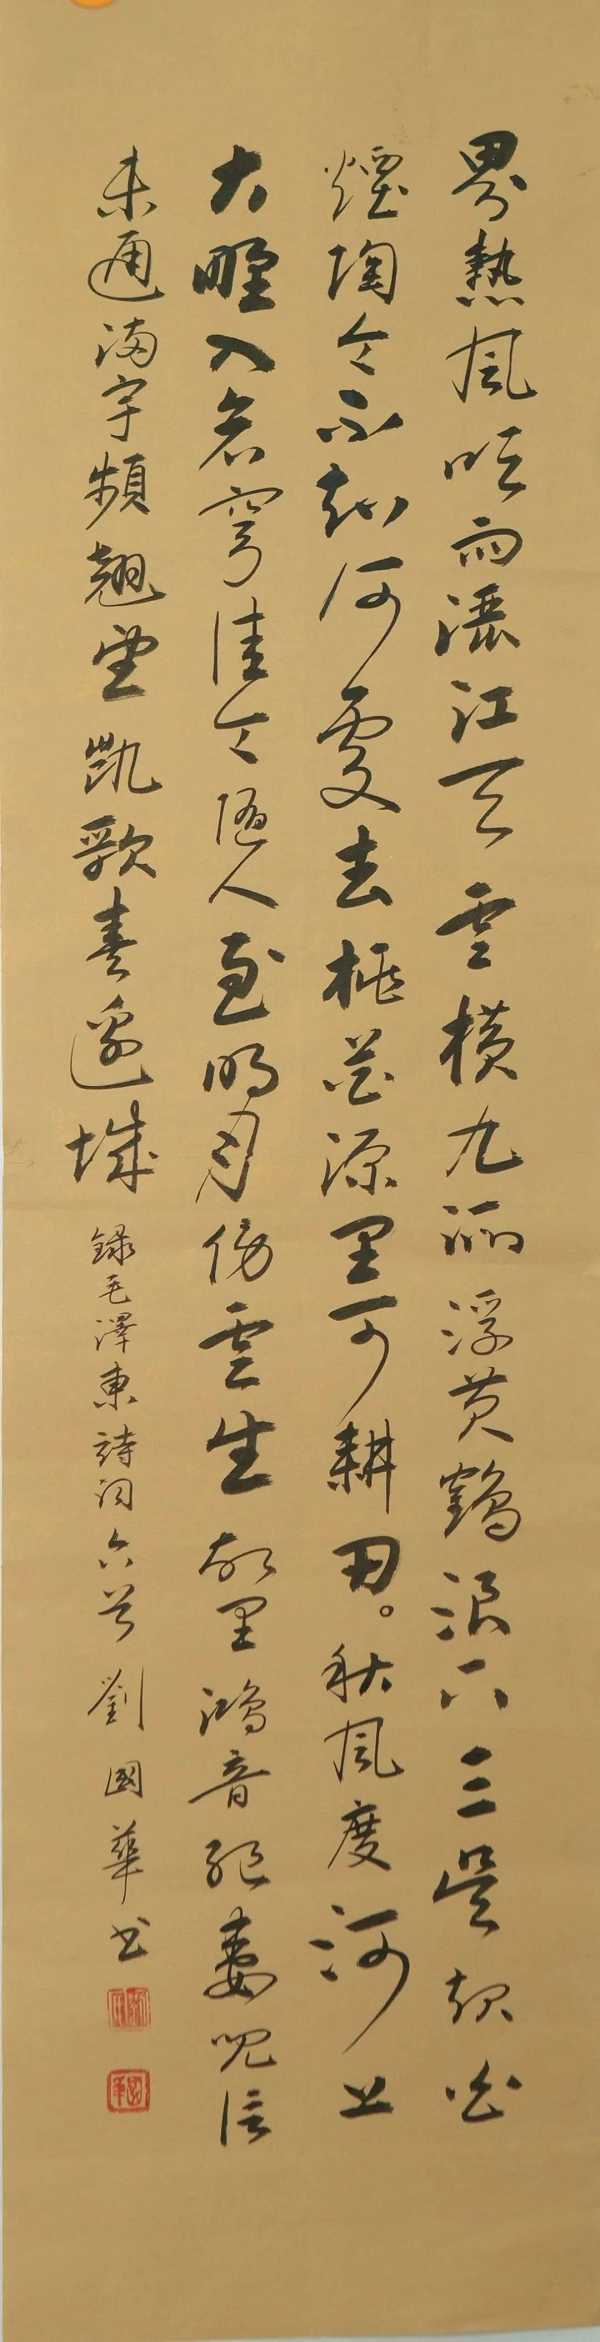 界熱風吹雨灑江天雲橫九派浮黃鶴浪下三吳起白
煙陶令不知何處去桃花源里可耕田。秋風度河上
大野入蒼穹佳令隨人至明月傍雲生故里鴻音絕妻兒信
未通滿宇頻翹望凱歌奏邊城 錄毛澤東詩詞六首 劉國華書